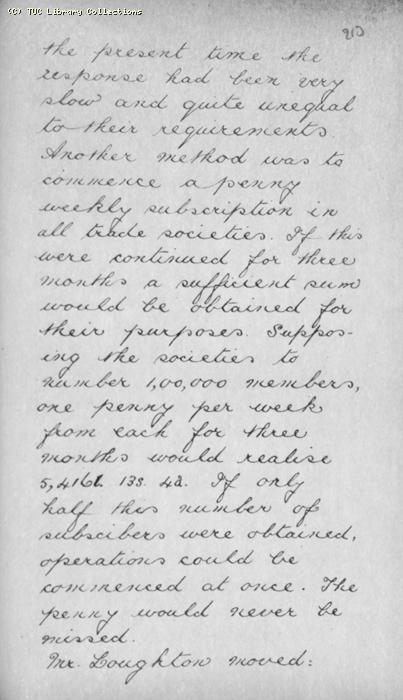 (C) TUC Library Collections
213
the present time the
response had been very
slow and quite unequal
to their requirements.
Another method was to
commence a penny
weekly subscription in
all trade societies. If this
were continued for three
months a sufficient sum
would be obtained for
their purposes. Suppos-
ing the societies to
number 1,00,000 members,
one penny per week
from each for three
months would realise
5,416l. 13s. 4d. If only
half this number of
subscibers were obtained,
operations could be
commenced at once. The
penny would never be
missed.
Mr. Loughton moved: